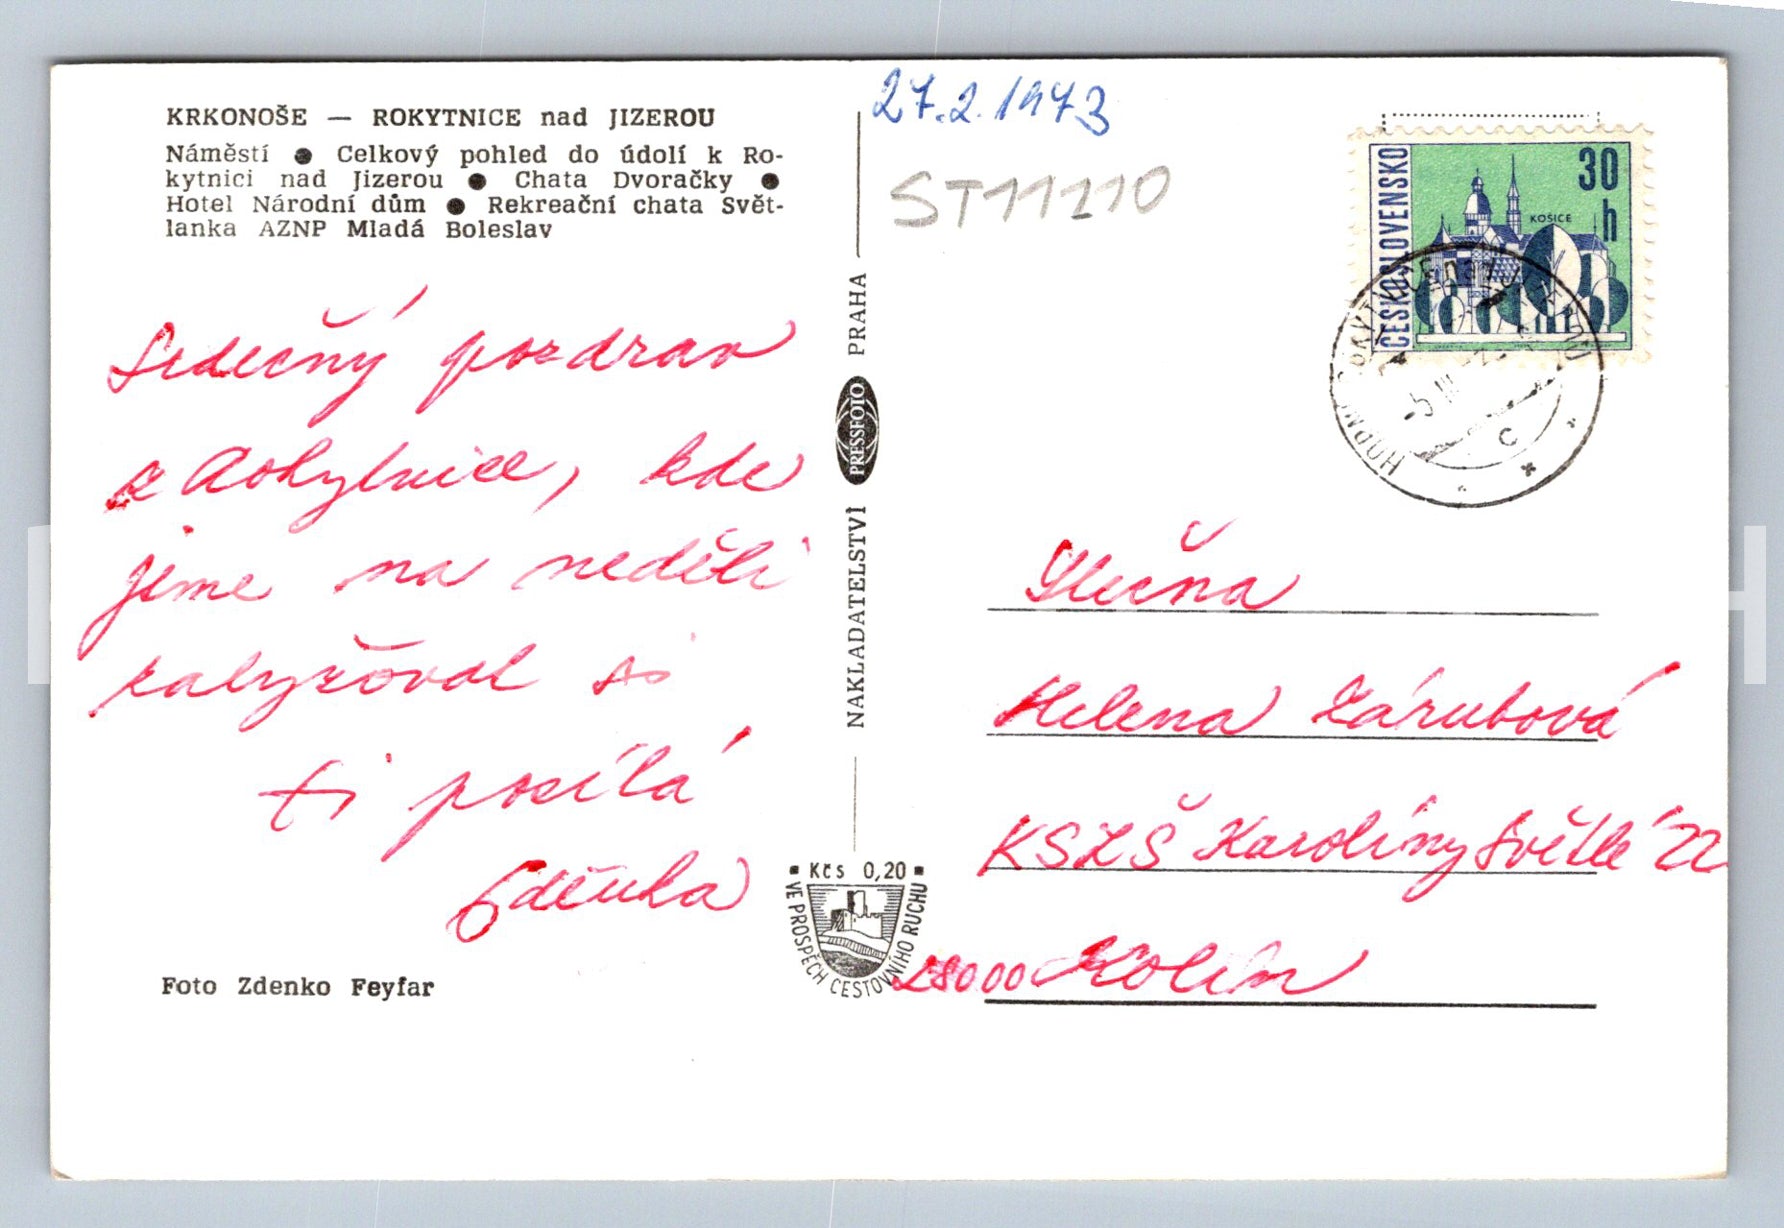 KRKONOŠE — ROKYTNICE nad JIZEROU
Náměstí ● Celkový pohled do údolí k Ro-
kytnici nad Jizerou ● Chata Dvoračky ●
Hotel Národní dům ● Rekreační chata Svět-
lanka AZNP Mladá Boleslav
Srdečný pozdrav
z Rokytnice, kde
jsme na neděli
zalyžovat si
ti posílá
Zdeňka
Foto Zdenko Feyfar
NAKLADATELSTVÍ PRESSFOTO PRAHA
Kčs 0,20
VE PROSPĚCH CESTOVNÍHO RUCHU
27.2.1973
ST11210
ČESKOSLOVENSKO
30
h
KOŠICE
C
Slečna
Helena Zárubová
KSZŠ Karolíny Světlé 22
28000 Kolín